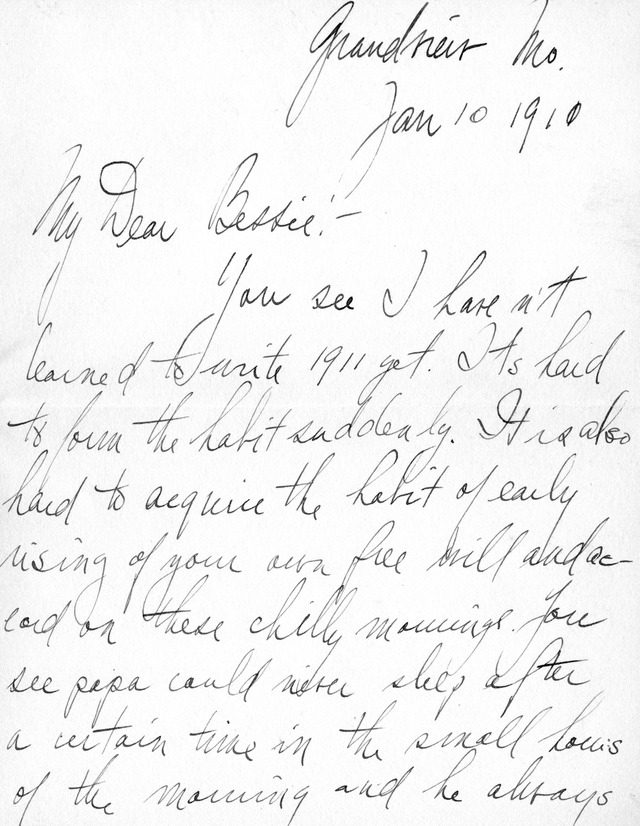 Grandview Mo.
Jan 10 1910
My Dear Bessie:-
You see I have n't
learned to write 1911 yet. Its hard
to form the habit suddenly. It is also
hard to acquire the habit of early
rising of your own free will and ac-
cord on these chilly mornings. You
see papa could never sleep after
a certain time in the small hours
of the morning and he always